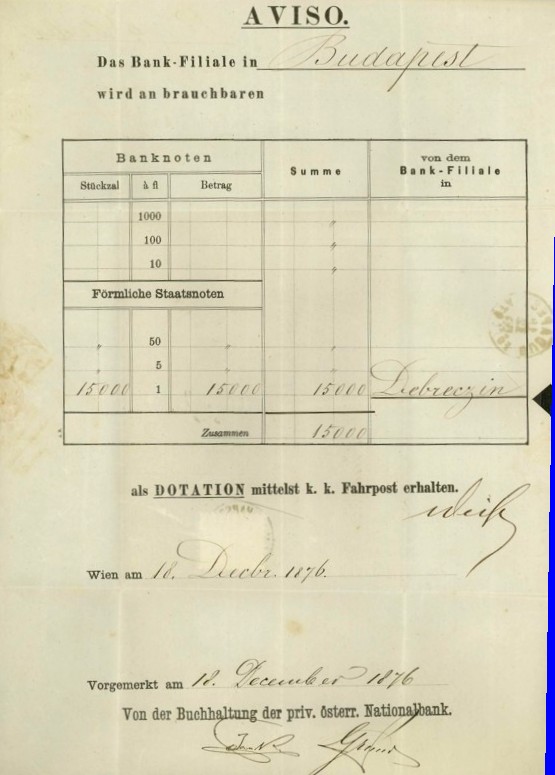 AVISO.
Das Bank-Filiale in Budapest
wird an brauchbaren
Banknoten Summe von dem Bank-Filiale in
Stückzal à fl Betrag
1000 〃
100 〃
10 〃
Förmliche Staatsnoten
〃 50 〃 〃
5
15000 1 15000 15000 Debreczin
Zusammen 15000
als DOTATION mittelst k. k. Fahrpost erhalten.
Wien am 18. Decbr. 1876.
Vorgemerkt am 18. December 1876
Von der Buchhaltung der priv. österr. Nationalbank.